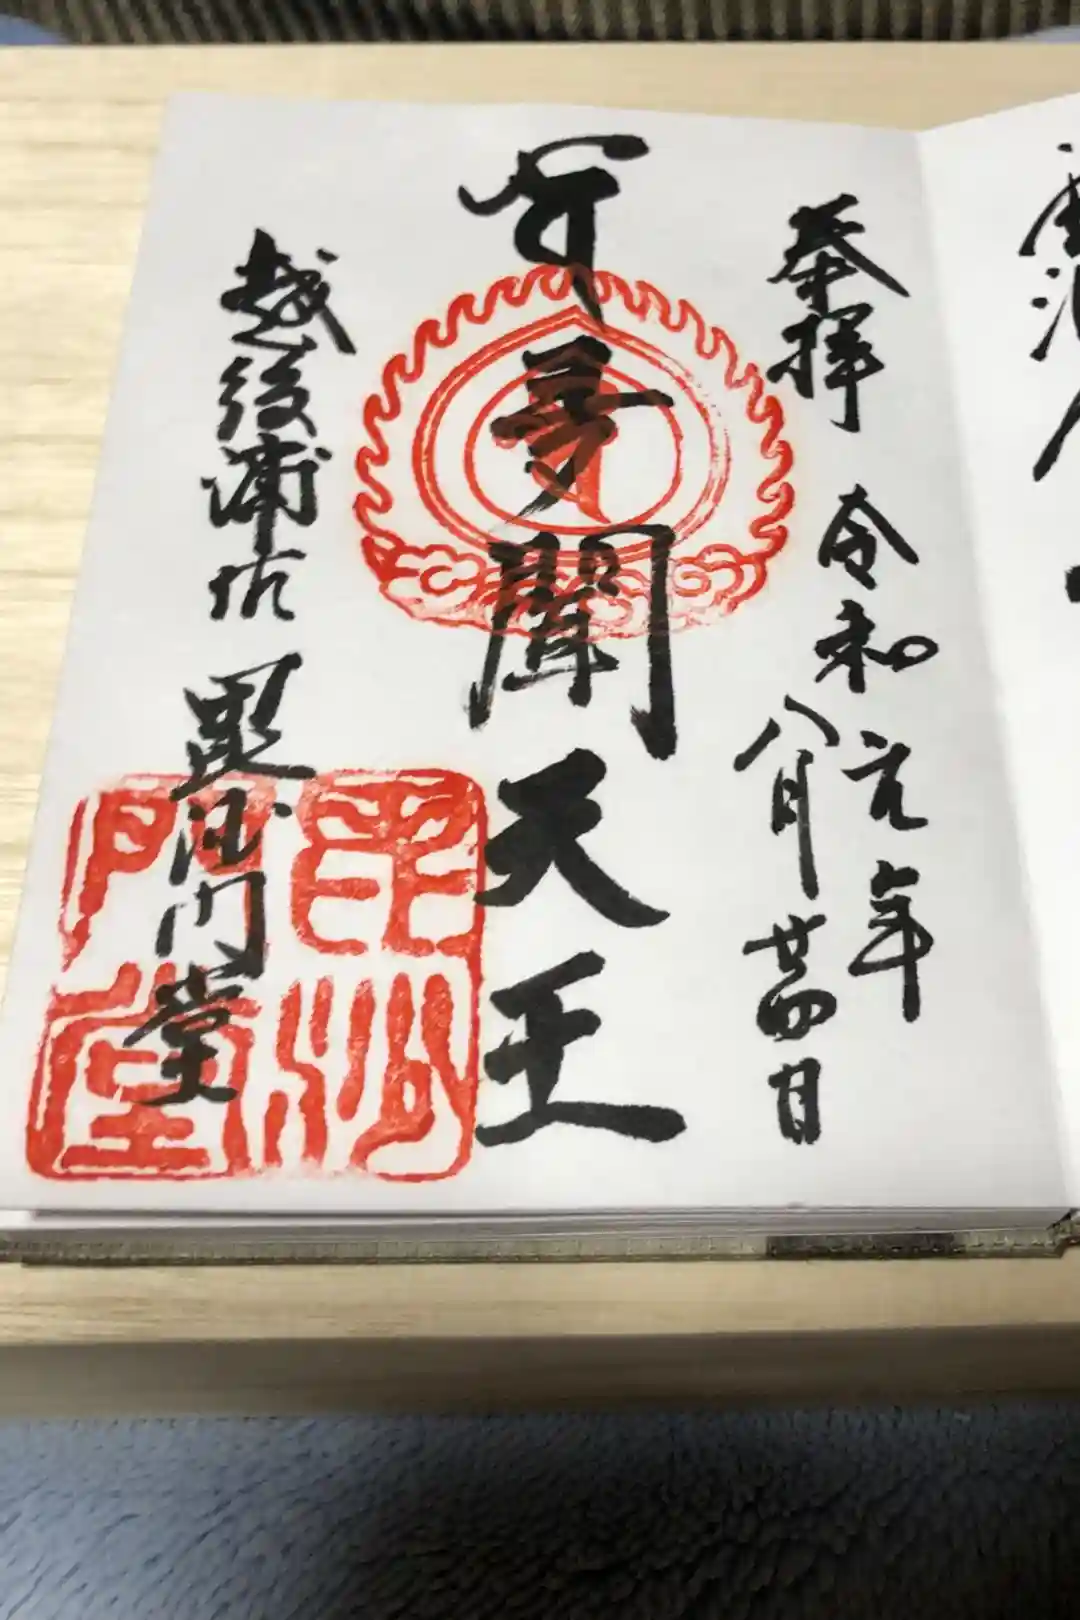 奉拝 令和元年
八月廿四日
夛聞天王
越後浦佐 毘沙門堂
毘沙
門堂